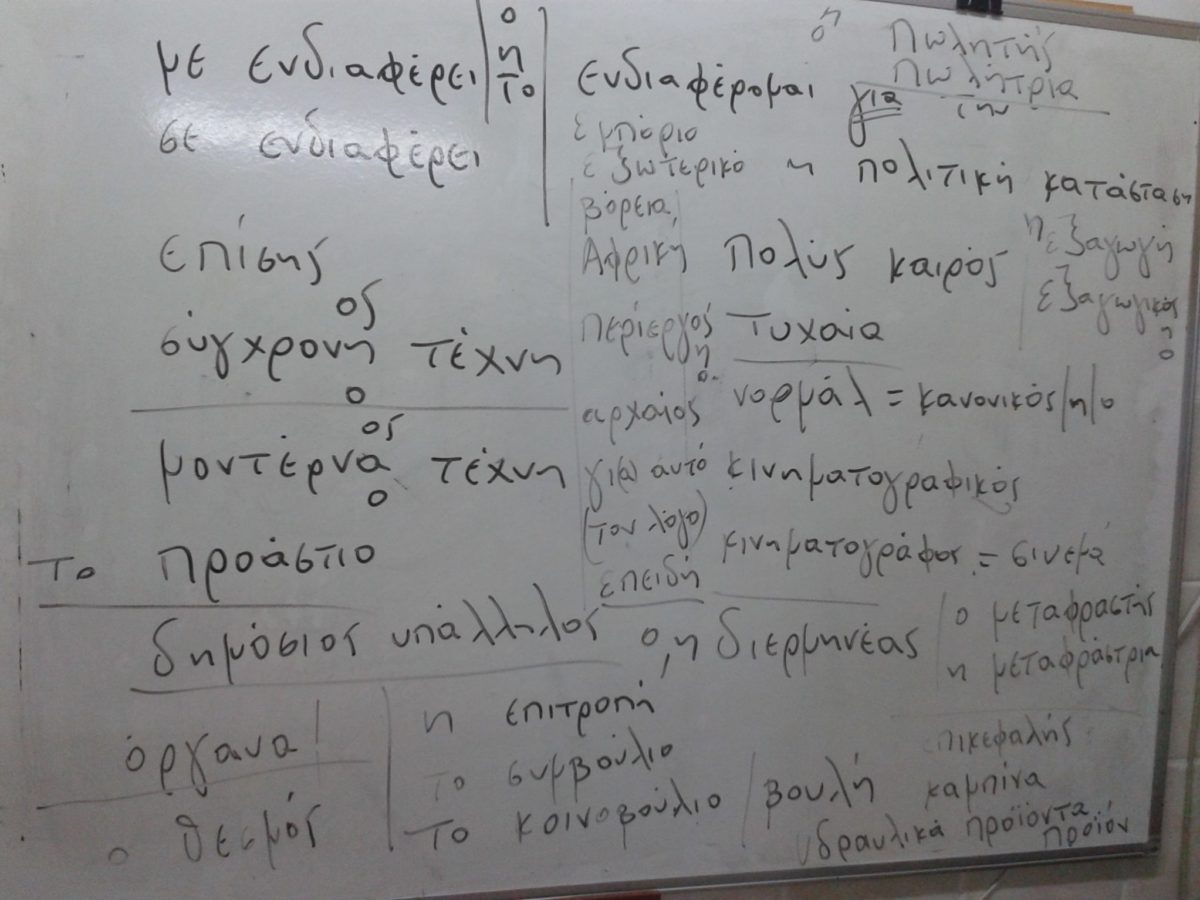 με ενδιαφέρει ο η το
σε ενδιαφέρει
επίσης
ος
σύγχρονη τέχνη
ο
ος
μοντέρνα τέχνη
ο
το προάστιο
δημόσιος υπάλληλος
όργανα
ο θεσμός
ο,η Πωλητής
Πωλήτρια
ενδιαφέρομαι για την
εμπόριο
εξωτερικό
η πολιτική κατάσταση
βόρεια,
Αφρική
πολύς καιρός
η εξαγωγή
εξαγωγικός
η
ο
περίεργος
η
ο
τυχαία
αρχαίος
νορμάλ = κανονικός/η/ο
γι(α) αυτό
(τον λόγο)
κινηματογραφικός
κινηματογράφος = σινεμά
επειδή
ο,η διερμηνέας
ο μεταφραστής
η μεταφράστρια
η επιτροπή
το συμβούλιο
το κοινοβούλιο
βουλή
πικεφαλής
καμπίνα
υδραυλικά προϊόντα
προϊόν